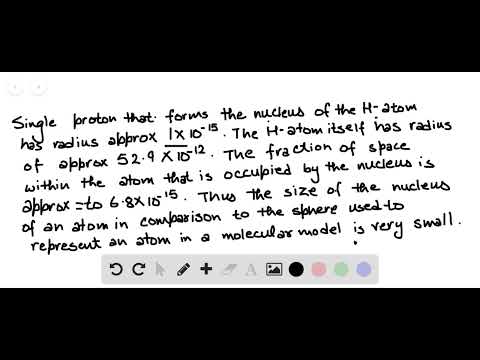 Single proton that forms the nucleus of the H-atom
has radius approx 1X10⁻¹⁵. The H-atom itself has radius
of approx 52.9 X10⁻¹². The fraction of space
within the atom that is occupied by the nucleus is
approx = to 6.8X10⁻¹⁵. Thus the size of the nucleus
of an atom in comparison to the sphere used to
represent an atom in a molecular model is very small.
A